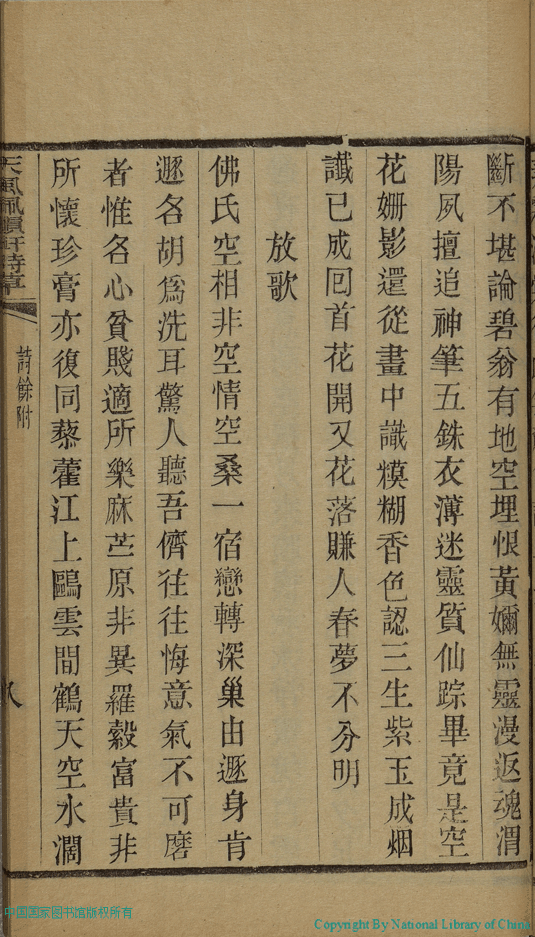 斷不堪論碧翁有地空埋恨黃壚無靈漫返魂渭
陽夙擅追神筆五銖衣薄迷靈質仙踪畢竟是空
花姍影還從畫中識糢糊香色認三生紫玉成烟
讖已成回首花開又花落賺人春夢不分明
放歌
佛氏空相非空情空桑一宿戀轉深巢由遯身肯
遯名胡為洗耳驚人聽吾儕往往悔意氣不可磨
者惟名心貧賤適所樂麻苎原非異羅縠富貴非
所懷珍膏亦復同藜藿江上鷗雲間鶴天空水濶
天風佩韻軒詩草
詩餘附
八
中国国家图书馆版权所有
Copyright By National Library of China